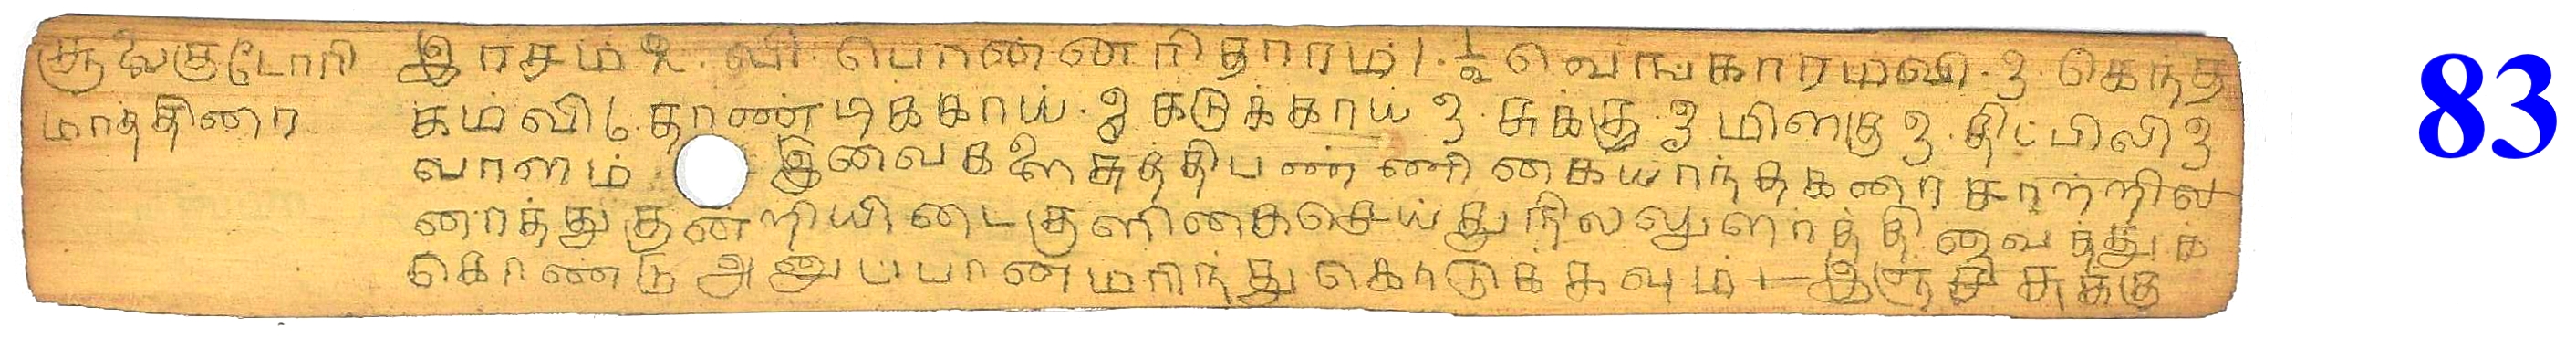 சூலைகுடோரி இரசம் உ. வி. பொன்னரிதாரம் ۱. ½ வெங்காரம்வி. ௩. கெந்த
மாத்திரை கம்வி தாண்டிக்காய். ௩ கடுக்காய் ௩. சுக்கு. ௩ மிளகு ௩. திப்பிலி ௩
வாளம் இவைகளை சுத்திபண்ணி கையாந்தகரை சாற்றில
ரைத்து குன்றியிடை குளிகை செய்து நிலலுலாத்தி வைத்துக்
கொண்டு அனுப்பானமரிந்து கொடுக்கவும் + இஞ்சி சுக்கு
83